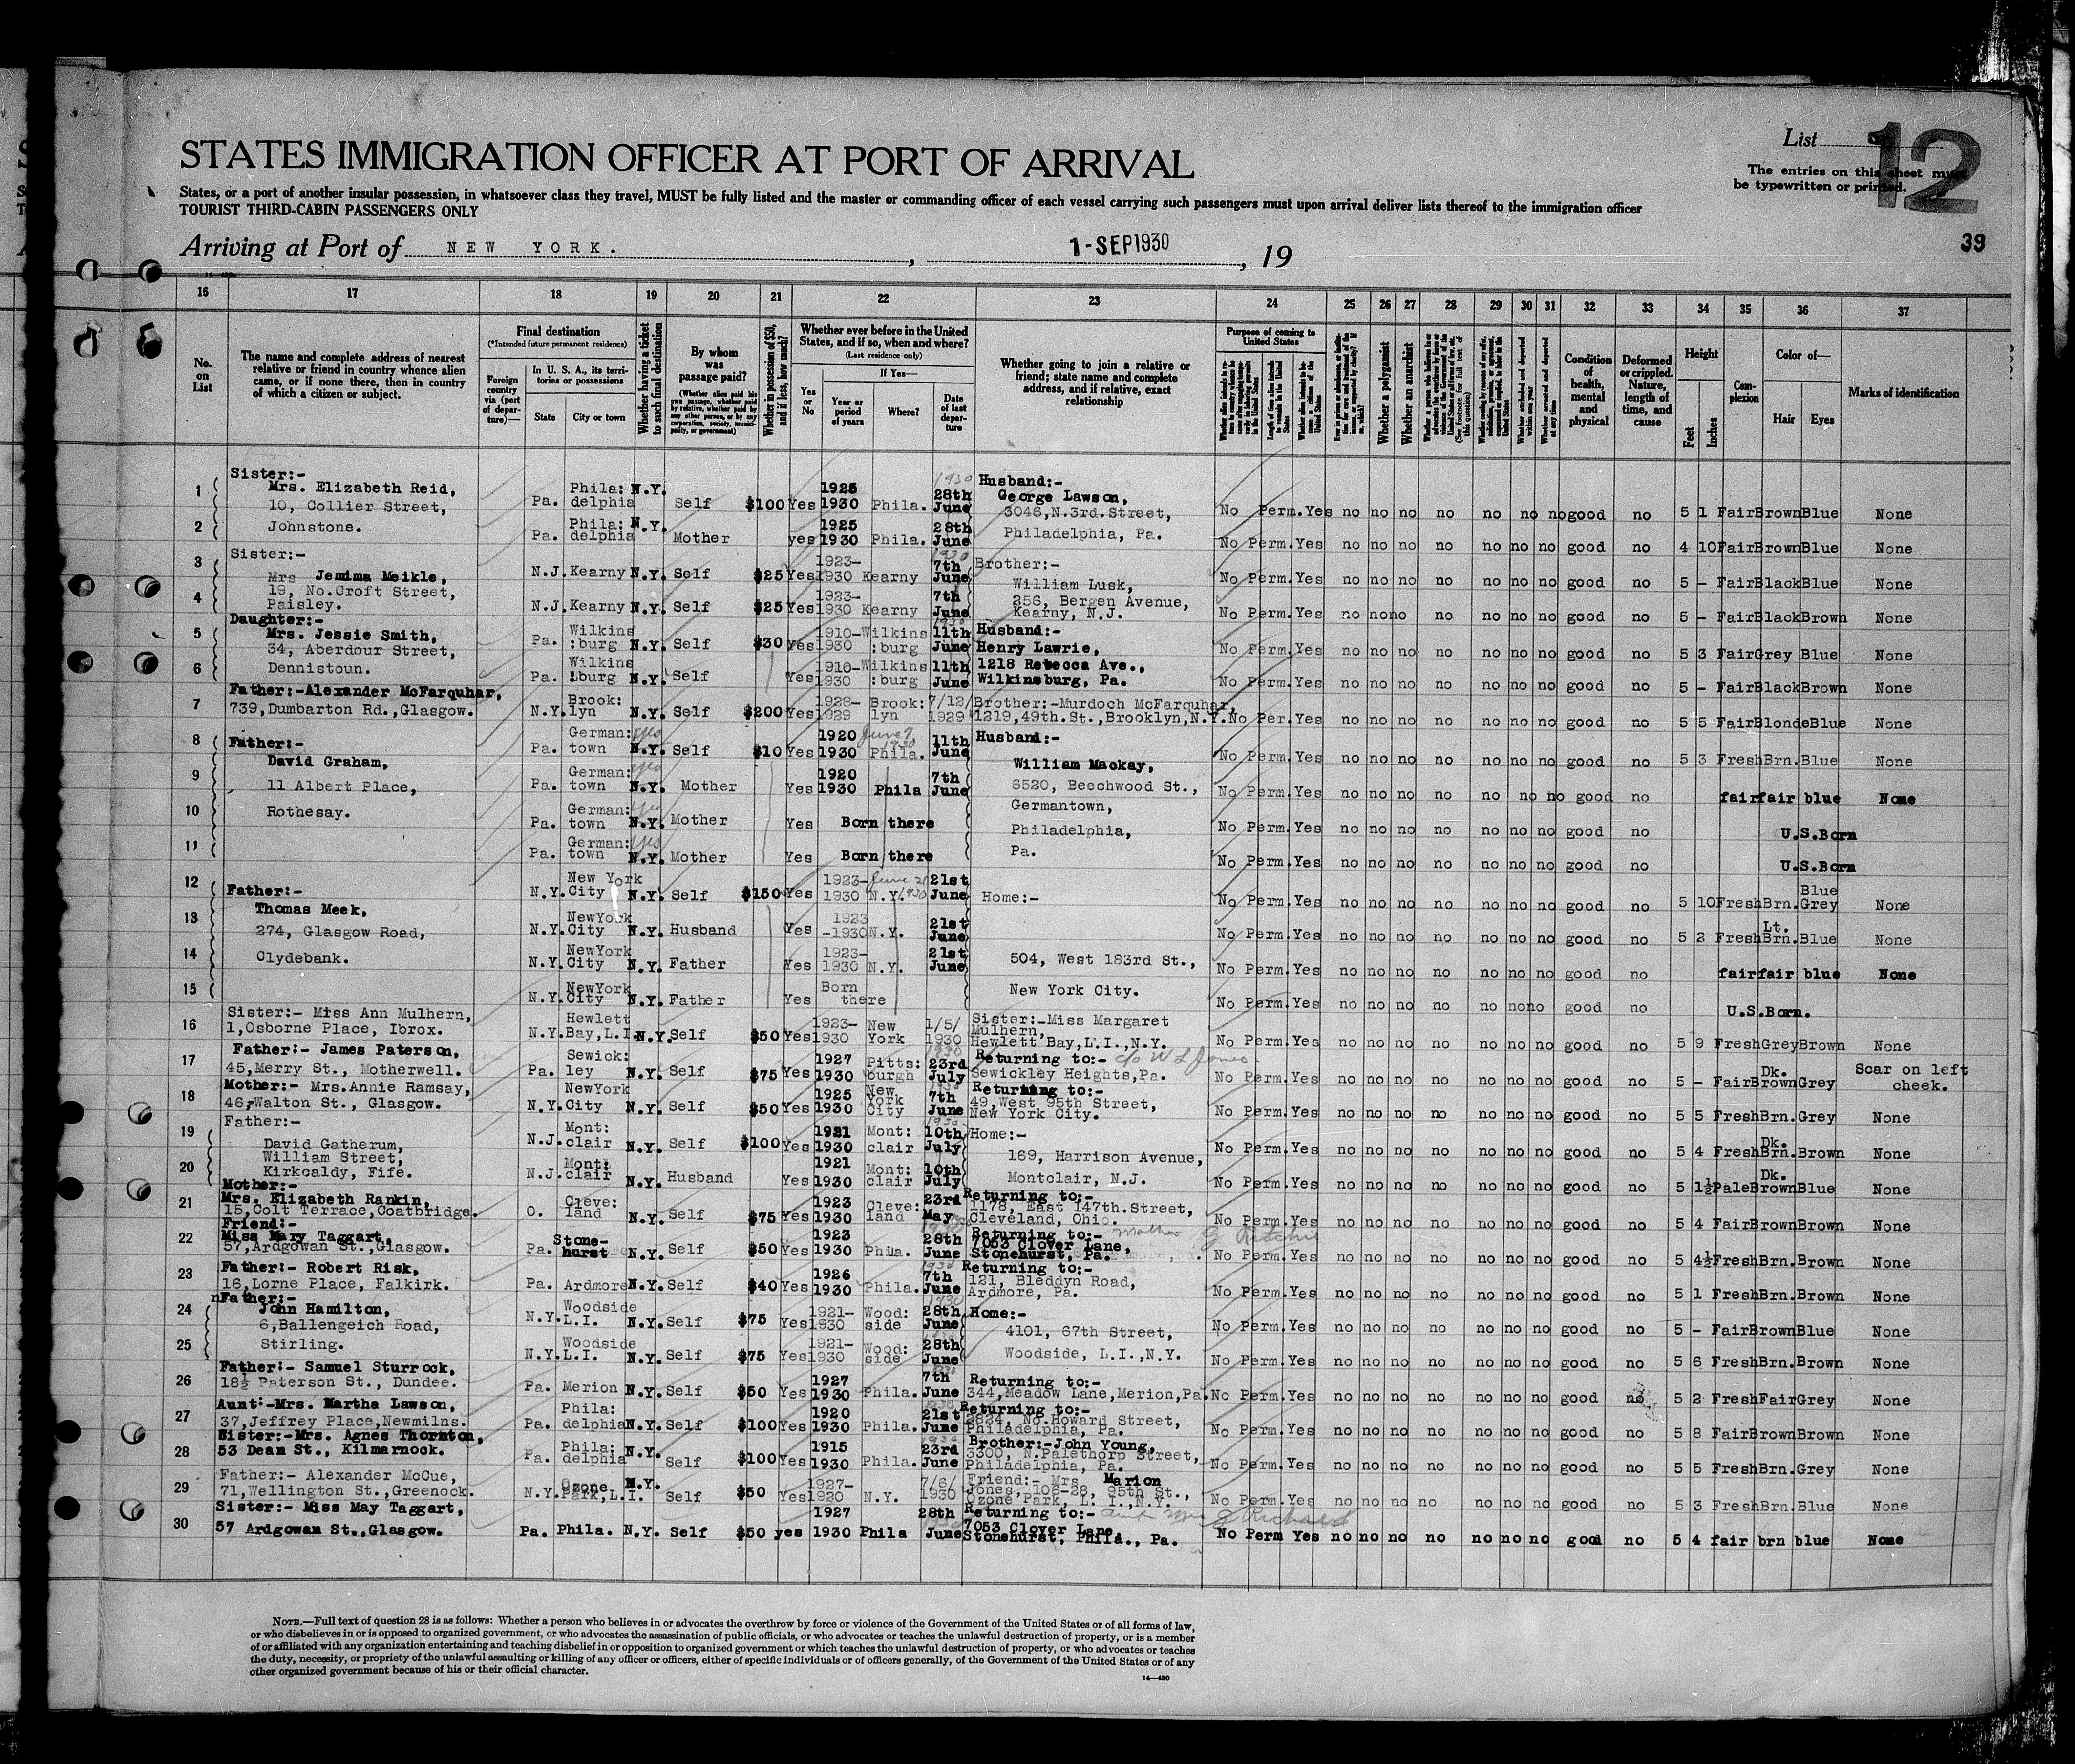 STATES IMMIGRATION OFFICER AT PORT OF ARRIVAL
List
12
The entries on this sheet must
be typewritten or printed.
States, or a port of another insular possession, in whatsoever class they travel, MUST be fully listed and the master or commanding officer of each vessel carrying such passengers must upon arrival deliver lists thereof to the immigration officer
TOURIST THIRD-CABIN PASSENGERS ONLY
Arriving at Port of NEW YORK. , 1-SEP1930 , 19
39
16 17 18 19 20 21 22 23 24 25 26 27 28 29 30 31 32 33 34 35 36 37
No. on List
The name and complete address of nearest relative or friend in country whence alien came, or if none there, then in country of which a citizen or subject.
Final destination
(*Intended future permanent residence)
Foreign country via (port of departure)—
In U. S. A., its territories or possessions
State City or town
Whether having a ticket to such final destination
By whom was passage paid?
(Whether alien paid his own passage, whether paid by relative, whether paid by any other person, or by any corporation, society, municipality, or government)
Whether in possession of $50, and if less, how much?
Whether ever before in the United States, and if so, when and where?
(Last residence only)
Yes or No
If Yes—
Year or period of years Where? Date of last departure
Whether going to join a relative or friend; state name and complete address, and if relative, exact relationship
Purpose of coming to United States
Whether a polygamist
Whether an anarchist
Condition of health, mental and physical
Deformed or crippled. Nature, length of time, and cause
Height
Feet Inches
Complexion
Color of—
Hair Eyes
Marks of identification
1 Sister:- Mrs. Elizabeth Reid, 10, Collier Street, Pa. Phila: delphia N.Y. Self $100 Yes 1925 1930 Phila. 1930 28th June Husband:- George Lawson, 3046,N.3rd.Street, No Perm. Yes no no no no no no no good no 5 1 Fair Brown Blue None
2 Johnstone. Pa. Phila: delphia N.Y. Mother yes 1925 1930 Phila. 28th June Philadelphia, Pa. No Perm. Yes no no no no no no no good no 4 10 Fair Brown Blue None
3 Sister:- Mrs Jemima Meikle, N.J. Kearny N.Y. Self $25 Yes 1923- 1930 Kearny 1930 7th June Brother:- William Lusk, No Perm. Yes no no no no no no no good no 5 - Fair Black Blue None
4 19, No.Croft Street, Paisley. N.J. Kearny N.Y. Self $25 Yes 1923- 1930 Kearny 7th June 256, Bergen Avenue, Kearny, N.J. No Perm. Yes no no no no no no no good no 5 - Fair Black Brown None
5 Daughter:- Mrs. Jessie Smith, 34, Aberdour Street, Pa. Wilkins :burg N.Y. Self $30 Yes 1910- 1930 Wilkins :burg 11th June Husband:- Henry Lawrie, No Perm. Yes no no no no no no no good no 5 3 Fair Grey Blue None
6 Dennistoun. Pa. Wilkins :burg N.Y. Self Yes 1910- 1930 Wilkins :burg 11th June 1218 Rebecca Ave., Wilkinsburg, Pa. No Perm. Yes no no no no no no no good no 5 - Fair Black Brown None
7 Father:-Alexander McFarquhar, 739,Dumbarton Rd.,Glasgow. N.Y. Brook: lyn N.Y. Self $200 Yes 1928- 1929 Brook: lyn 7/12/ 1929 Brother:-Murdoch McFarquhar, 1219,49th.St.,Brooklyn,N.Y. No Per. Yes no no no no no no no good no 5 5 Fair Blonde Blue None
8 Father:- David Graham, Pa. German: town yes N.Y. Self $10 Yes 1920 1930 June 7 1930 Phila. 11th June Husband:- William Mackay, No Perm. Yes no no no no no no no good no 5 3 Fresh Brn. Blue None
9 11 Albert Place, Pa. German: town yes N.Y. Mother Yes 1920 1930 Phila 7th June 6520, Beechwood St., No Perm. Yes no no no no no no no good no fair fair blue None
10 Rothesay. Pa. German: town yes N.Y. Mother Yes Born there Germantown, Philadelphia, No Perm. Yes no no no no no no no good no U.S.Born
11 Pa. German: town yes N.Y. Mother Yes Born there Pa. No Perm. Yes no no no no no no no good no U.S.Born
12 Father:- Thomas Meek, N.Y. New York City N.Y. Self $150 Yes 1923- 1930 N.Y. June 21 1930 21st June Home:- No Perm. Yes no no no no no no no good no 5 10 Fresh Brn. Blue Grey None
13 274, Glasgow Road, N.Y. NewYork City N.Y. Husband Yes 1923 -1930 N.Y. 21st June No Perm. Yes no no no no no no no good no 5 2 Fresh Lt. Brn. Blue None
14 Clydebank. N.Y. NewYork City N.Y. Father Yes 1923- 1930 N.Y. 21st June 504, West 183rd St., No Perm. Yes no no no no no no no good no fair fair blue None
15 N.Y. NewYork City N.Y. Father Yes Born there New York City. No Perm. Yes no no no no no no no good no U.S.Born.
16 Sister:- Miss Ann Mulhern, 1,Osborne Place, Ibrox. N.Y. Hewlett Bay,L.I. N.Y. Self $50 Yes 1923- 1930 New York 1/5/ 1930 Sister:-Miss Margaret Mulhern, Hewlett Bay,L.I.,N.Y. No Perm. Yes no no no no no no no good no 5 9 Fresh Grey Brown None
17 Father:- James Paterson, 45,Merry St., Motherwell. Pa. Sewick: ley N.Y. Self $75 Yes 1927 1930 Pitts: burgh 1930 23rd July Returning to:- c/o W L Jones Sewickley Heights,Pa. No Perm. Yes no no no no no no no good no 5 - Fair Dk. Brown Grey Scar on left cheek.
18 Mother:- Mrs.Annie Ramsay, 46,Walton St., Glasgow. N.Y. NewYork City N.Y. Self $50 Yes 1925 1930 New York City 7th June Returning to:- 49,West 95th Street, New York City. No Perm. Yes no no no no no no no good no 5 5 Fresh Brn. Grey None
19 Father:- David Gatherum, William Street, N.J. Mont: clair N.Y. Self $100 Yes 1921 1930 Mont: clair 1930 10th July Home:- 169, Harrison Avenue, No Perm. Yes no no no no no no no good no 5 4 Fresh Dk. Brn. Brown None
20 Kirkcaldy, Fife. N.J. Mont: clair N.Y. Husband Yes 1921 1930 Mont: clair 10th July Montclair, N.J. No Perm. Yes no no no no no no no good no 5 1½ Pale Dk. Brown Blue None
21 Mother:- Mrs. Elizabeth Rankin, 15,Colt Terrace,Coatbridge. O. Cleve: land N.Y. Self $75 Yes 1923 1930 Cleve: land 23rd May Returning to:- 1178, East 147th.Street, Cleveland, Ohio. No Perm. Yes no no no no no no no good no 5 4 Fair Brown Brown None
22 Friend:- Miss Mary Taggart, 57,Ardgowan St.,Glasgow. Pa. Stone- hurst N.Y. Self $50 Yes 1923 1930 Phila. 28th June Returning to:- Mother 7053 Clover Lane, Stonehurst, Pa. No Perm. Yes no no no no no no no good no 5 4½ Fresh Brn. Brown None
23 Father:- Robert Risk, 16,Lorne Place, Falkirk. Pa. Ardmore N.Y. Self $40 Yes 1926 1930 Phila. 1930 7th June Returning to:- 121, Bleddyn Road, Ardmore, Pa. No Perm. Yes no no no no no no no good no 5 1 Fresh Brn. Brown None
24 Father:- John Hamilton, 6,Ballengeich Road, N.Y. Woodside L.I. N.Y. Self $75 Yes 1921- 1930 Wood: side 1930 28th June Home:- 4101, 67th Street, No Perm. Yes no no no no no no no good no 5 - Fair Brown Blue None
25 Stirling. N.Y. Woodside L.I. N.Y. Self $75 Yes 1921- 1930 Wood: side 28th June Woodside, L.I.,N.Y. No Perm. Yes no no no no no no no good no 5 6 Fresh Brn. Brown None
26 Father:- Samuel Sturrock, 18½ Paterson St., Dundee. Pa. Merion N.Y. Self $50 Yes 1927 1930 Phila. 7th June Returning to:- 344,Meadow Lane,Merion,Pa. No Perm. Yes no no no no no no no good no 5 2 Fresh Fair Grey None
27 Aunt:-Mrs. Martha Lawson, 37,Jeffrey Place,Newmilns. Pa. Phila: delphia N.Y. Self $100 Yes 1920 1930 Phila. 21st June Returning to:- 2824, No.Howard Street, Philadelphia, Pa. No Perm. Yes no no no no no no no good no 5 8 Fair Brown Brown None
28 Sister:-Mrs. Agnes Thornton, 53 Dean St., Kilmarnock. Pa. Phila: delphia N.Y. Self $100 Yes 1915 1930 Phila. 23rd June Brother:-John Young, 3300, N.Palethorp Street, Philadelphia, Pa. No Perm. Yes no no no no no no no good no 5 5 Fresh Brn. Grey None
29 Father:- Alexander McCue, 71,Wellington St.,Greenock. N.Y. Ozone Park,L.I. N.Y. Self $50 Yes 1927- 1920 N.Y. 7/6/ 1930 Friend:- Mrs. Marion Jones, 106-28, 95th St., Ozone Park, L. I.,N.Y. No Perm. Yes no no no no no no no good no 5 3 Fresh Brn. Blue None
30 Sister:- Miss May Taggart, 57 Ardgowan St.,Glasgow. Pa. Phila. N.Y. Self $50 yes 1927 1930 Phila 28th June Returning to:- 7053 Clover Lane, Stonehurst, Phila., Pa. No Perm Yes no no no no no no no good no 5 4 fair brn blue None
NOTE.—Full text of question 28 is as follows: Whether a person who believes in or advocates the overthrow by force or violence of the Government of the United States or of all forms of law,
or who disbelieves in or is opposed to organized government, or who advocates the assassination of public officials, or who advocates or teaches the unlawful destruction of property, or is a member
of or affiliated with any organization entertaining and teaching disbelief in or opposition to organized government or which teaches the unlawful destruction of property, or who advocates or teaches
the duty, necessity, or propriety of the unlawful assaulting or killing of any officer or officers, either of specific individuals or of officers generally, of the Government of the United States or of any
other organized government because of his or their official character.
14—430